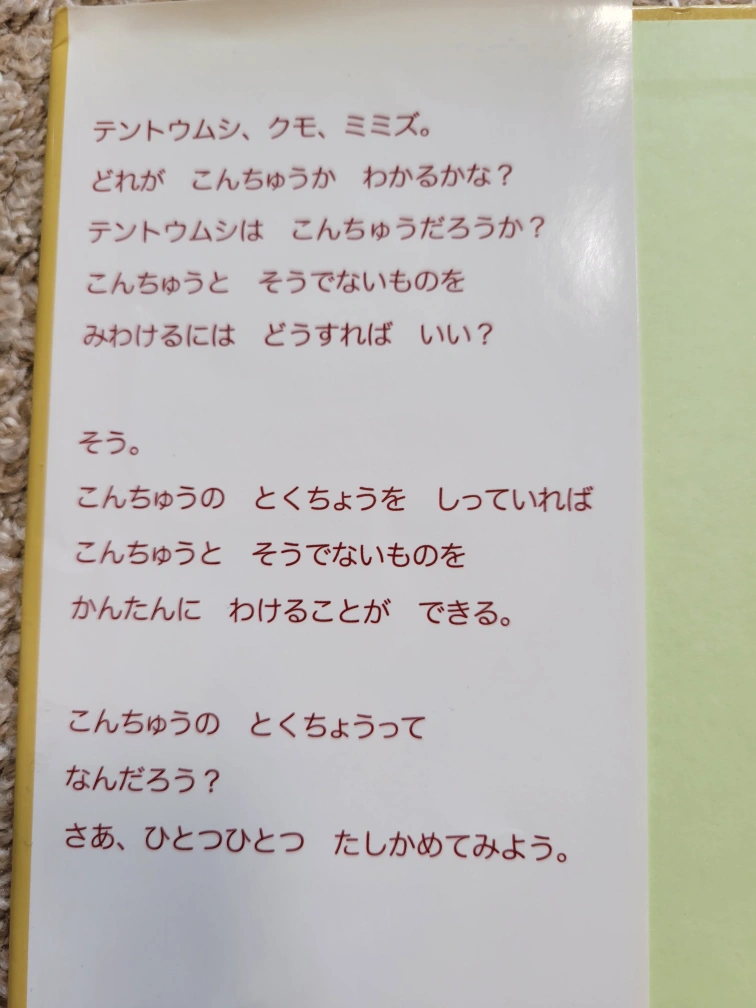 テントウムシ、クモ、ミミズ。
どれが　こんちゅうか　わかるかな？
テントウムシは　こんちゅうだろうか？
こんちゅうと　そうでないものを
みわけるには　どうすれば　いい？
そう。
こんちゅうの　とくちょうを　しっていれば
こんちゅうと　そうでないものを
かんたんに　わけることが　できる。
こんちゅうの　とくちょうって
なんだろう？
さあ、ひとつひとつ　たしかめてみよう。